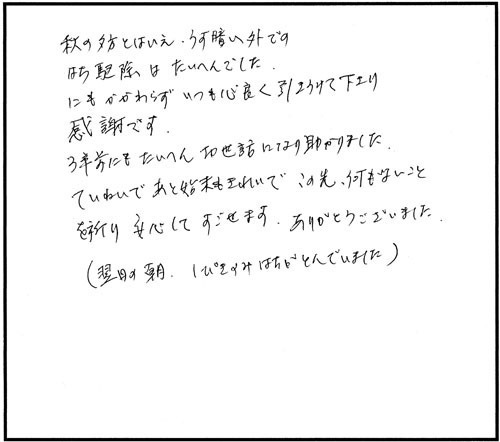 秋の夕方とはいえ、うす暗い外での
はち駆除はたいへんでした.
にもかかわらずいつも心良く引きうけて下さり
感謝です.
3年前にもたいへんお世話になり助かりました.
ていねいであと始末もきれいでこの先、何もないこと
を祈り安心してすごせます. ありがとうございました.
(翌日の朝. 1ぴきのみはちがとんでいました)